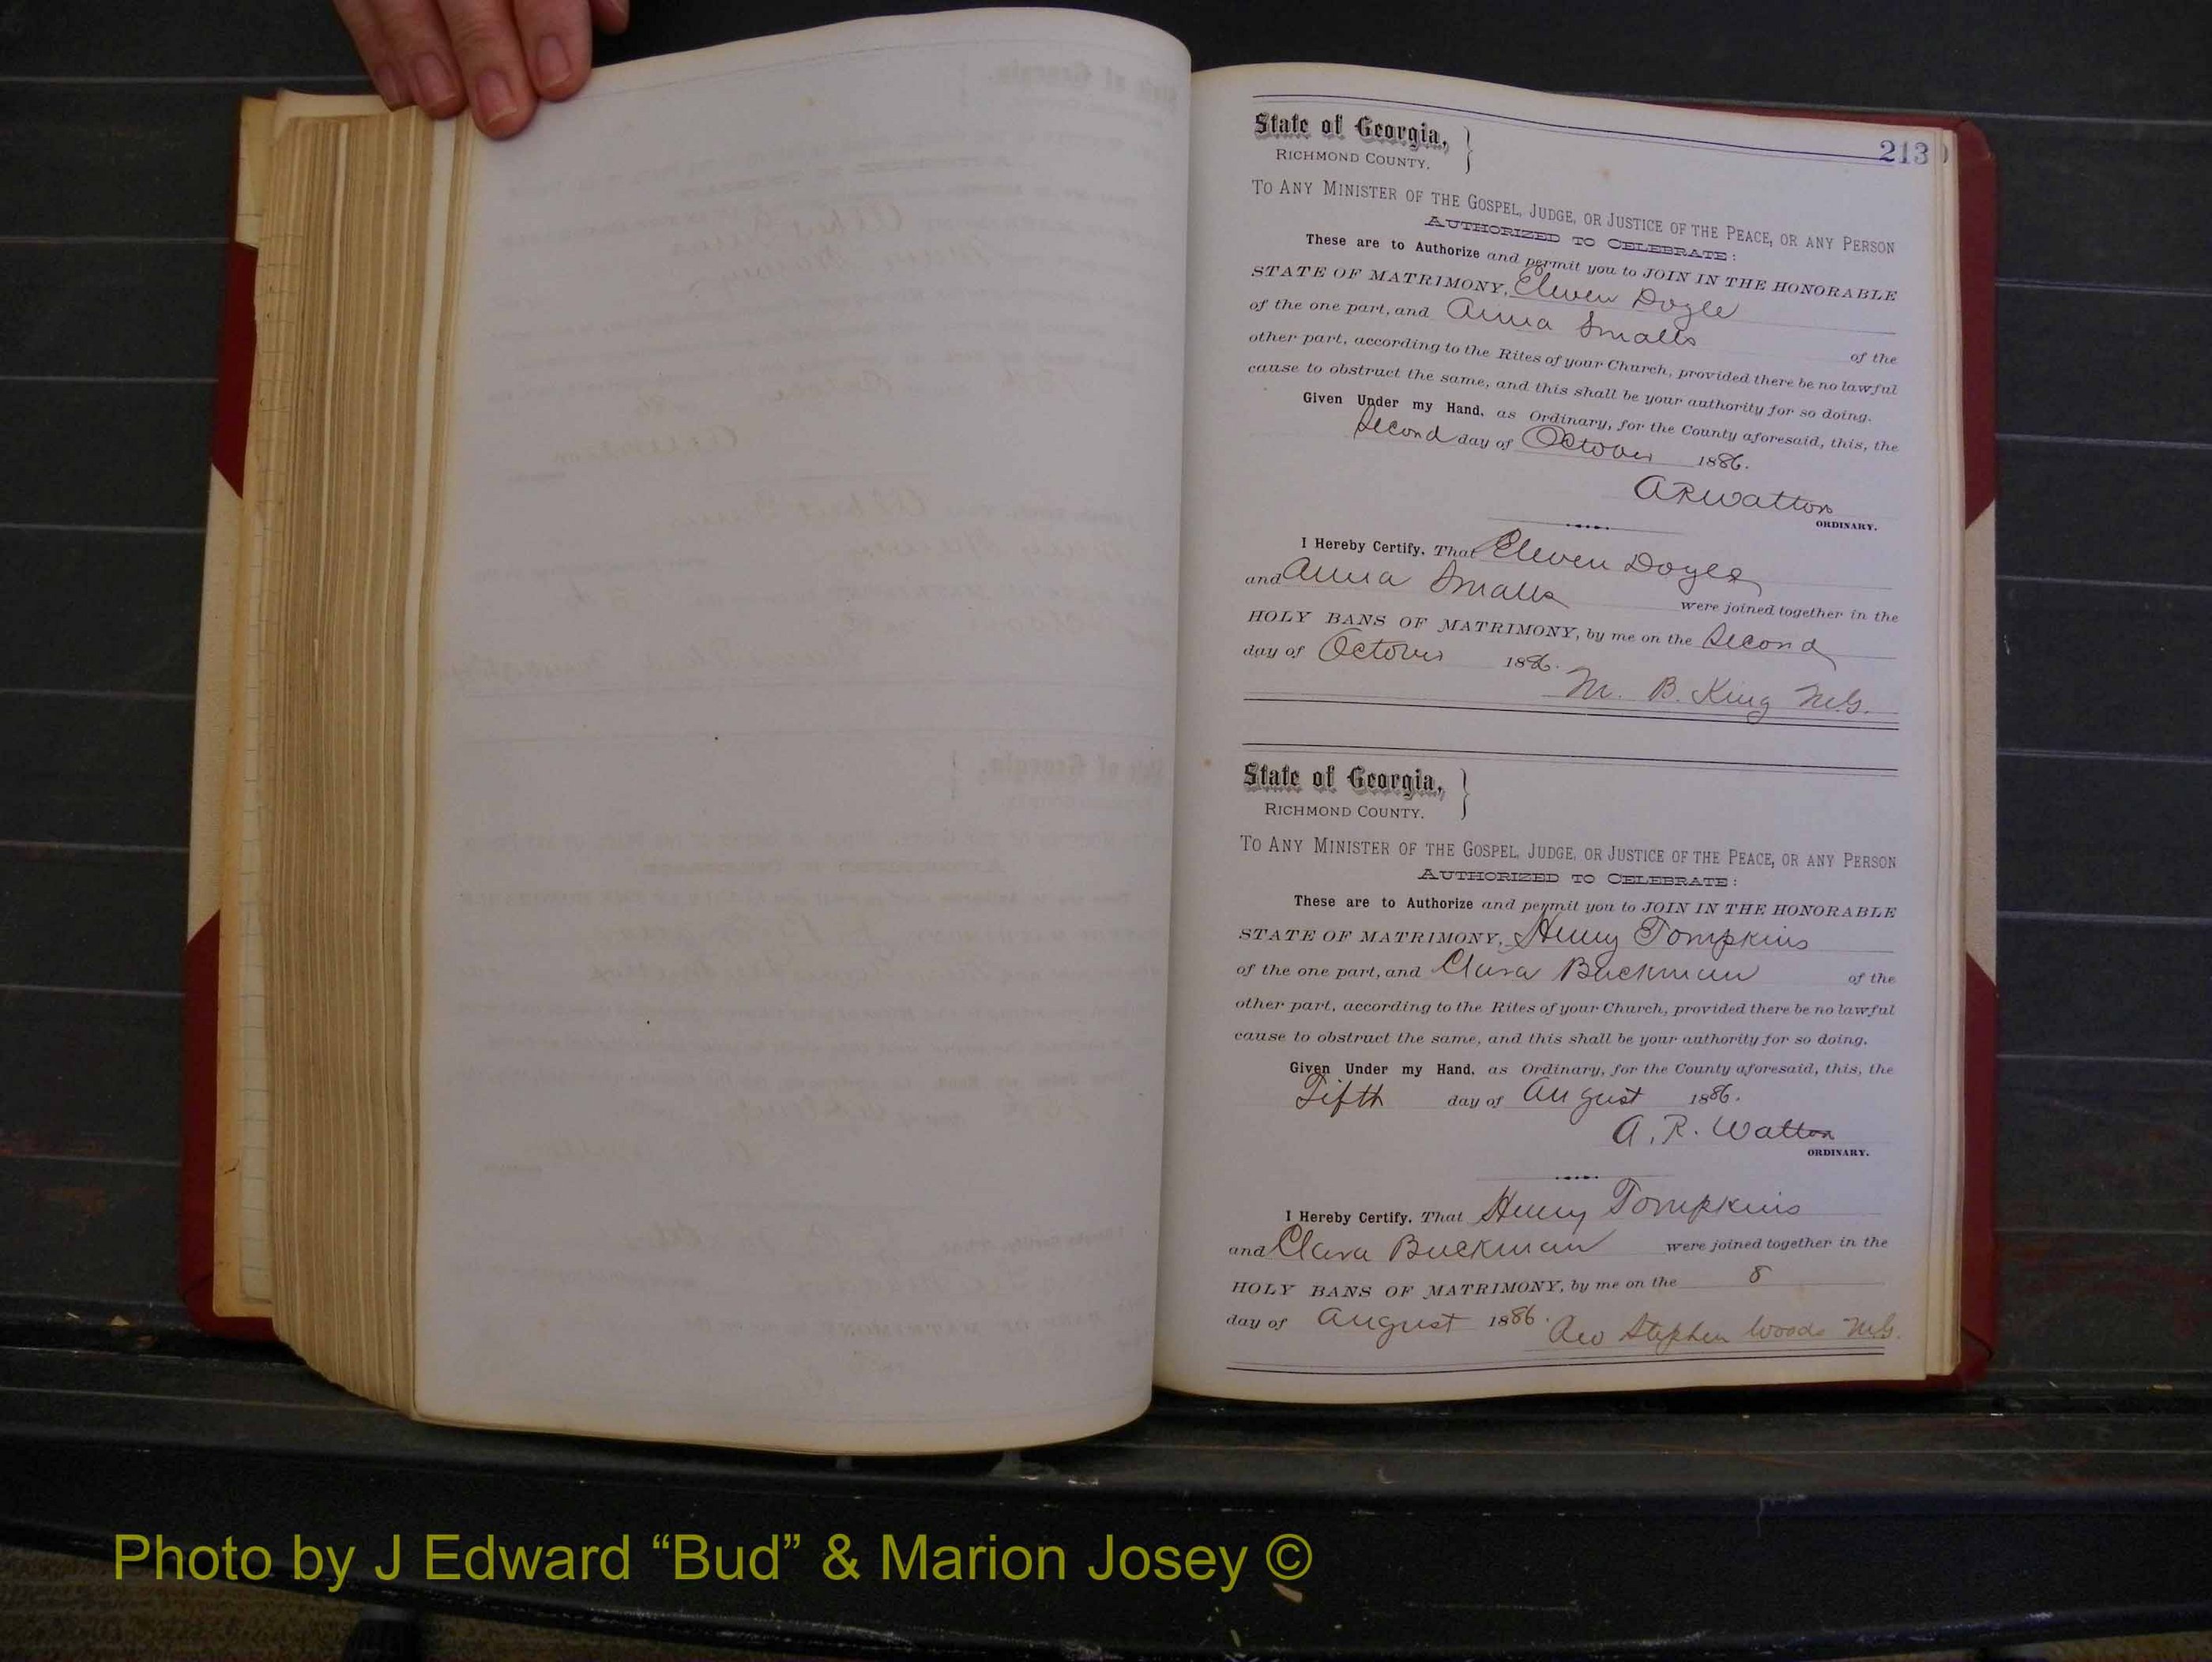 213
State of Georgia,
RICHMOND COUNTY.
TO ANY MINISTER OF THE GOSPEL, JUDGE, OR JUSTICE OF THE PEACE, OR ANY PERSON
AUTHORIZED TO CELEBRATE:
These are to Authorize and permit you to JOIN IN THE HONORABLE
STATE OF MATRIMONY, Eleven Doyle
of the one part, and Anna Smalls of the
other part, according to the Rites of your Church, provided there be no lawful
cause to obstruct the same, and this shall be your authority for so doing.
Given Under my Hand, as Ordinary, for the County aforesaid, this, the
Second day of October 1886.
A R Walton
ORDINARY.
I Hereby Certify, That Eleven Doyle
and Anna Smalls were joined together in the
HOLY BANS OF MATRIMONY, by me on the Second
day of October 1886.
M. B. King M.G.
State of Georgia,
RICHMOND COUNTY.
TO ANY MINISTER OF THE GOSPEL, JUDGE, OR JUSTICE OF THE PEACE, OR ANY PERSON
AUTHORIZED TO CELEBRATE:
These are to Authorize and permit you to JOIN IN THE HONORABLE
STATE OF MATRIMONY, Henry Tompkins
of the one part, and Clara Buckman of the
other part, according to the Rites of your Church, provided there be no lawful
cause to obstruct the same, and this shall be your authority for so doing.
Given Under my Hand, as Ordinary, for the County aforesaid, this, the
Fifth day of August 1886.
A. R. Walton
ORDINARY.
I Hereby Certify, That Henry Tompkins
and Clara Buckman were joined together in the
HOLY BANS OF MATRIMONY, by me on the 8
day of August 1886. Rev Stephen Woods M.G.
Photo by J Edward “Bud” & Marion Josey ©